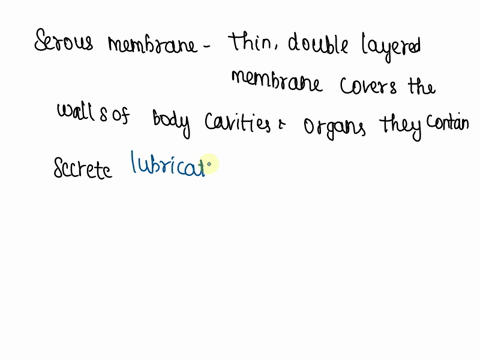 Serous membrane - thin, double layered
membrane covers the
walls of body cavities & organs they contain
secrete lubricat